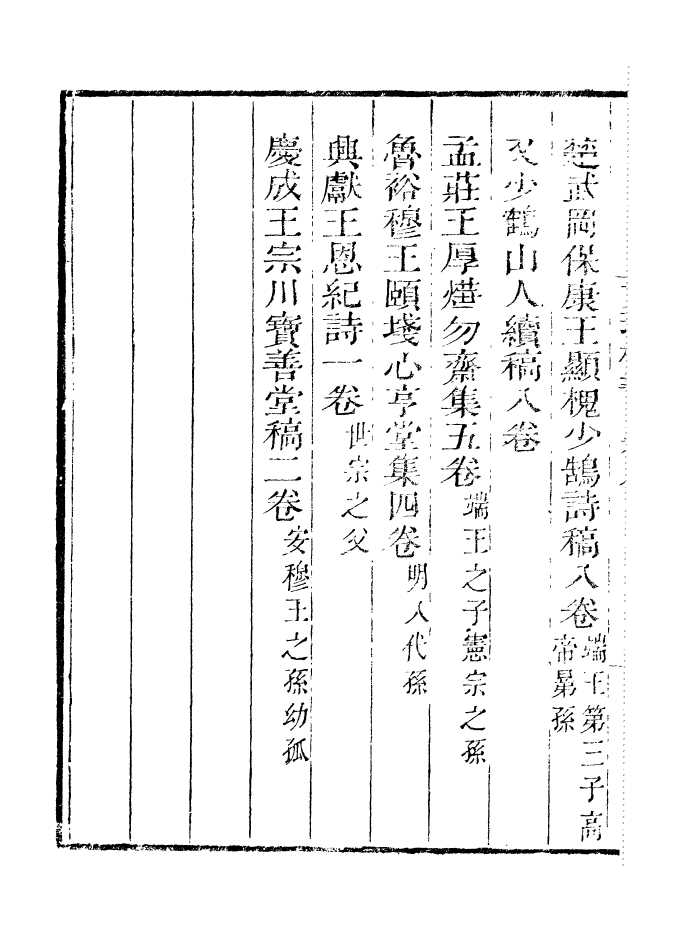 楚武岡保康王顯槐少鶴詩稿八卷端王第三子高帝曇孫
又少鶴山人續稿八卷
孟莊王厚燁勿齋集五卷端王之子憲宗之孫
魯裕穆王頤㙻心亨堂集四卷明八代孫
興獻王恩紀詩一卷世宗之父
慶成王宗川寶善堂稿二卷安穆王之孫幼孤